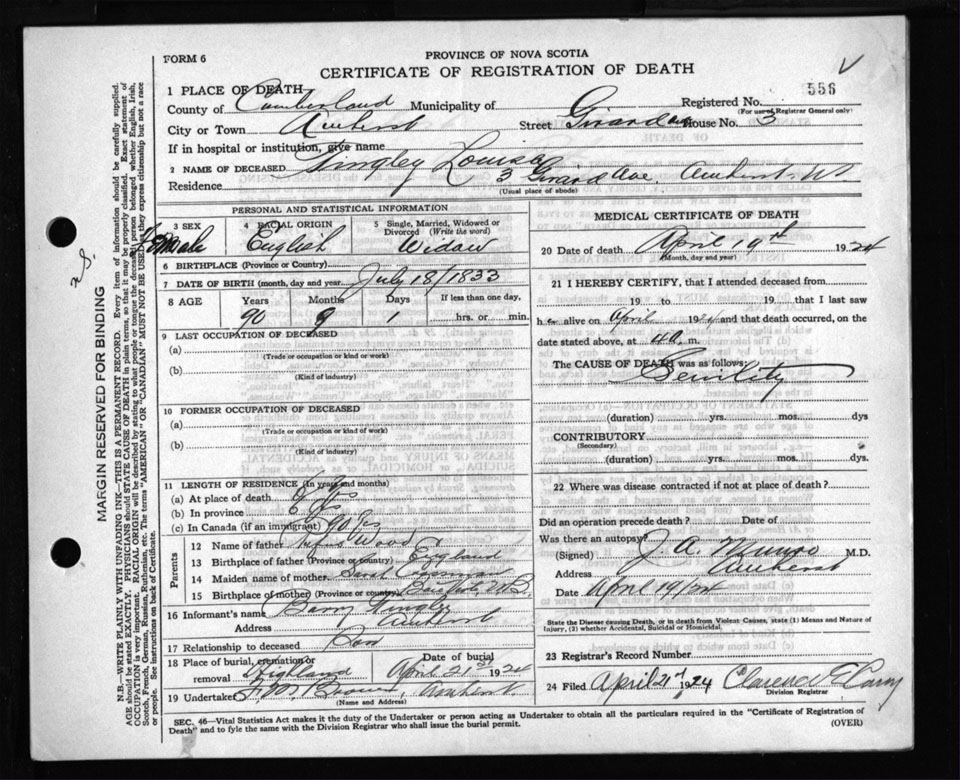 FORM 6
PROVINCE OF NOVA SCOTIA
CERTIFICATE OF REGISTRATION OF DEATH
1 PLACE OF DEATH
County of Cumberland Municipality of Registered No. 556
(For use of Registrar General only)
City or Town Amherst Street Girard Ave House No. 3
If in hospital or institution, give name
2 NAME OF DECEASED Tingley Louisa
Residence 3 Girard Ave Amherst NS
(Usual place of abode)
PERSONAL AND STATISTICAL INFORMATION
3 SEX Female
4 RACIAL ORIGIN English
5 Single, Married, Widowed or Divorced (Write the word) Widow
6 BIRTHPLACE (Province or Country)
7 DATE OF BIRTH (month, day and year) July 18/1833
8 AGE Years Months Days If less than one day,
90 9 1 hrs. or min.
9 LAST OCCUPATION OF DECEASED
(a)
(Trade or occupation or kind or work)
(b)
(Kind of industry)
10 FORMER OCCUPATION OF DECEASED
(a)
(Trade or occupation or kind or work)
(b)
(Kind of industry)
11 LENGTH OF RESIDENCE (In years and months)
(a) At place of death
(b) In province
(c) In Canada (if an immigrant) 90 yrs
Parents
12 Name of father Wood
13 Birthplace of father (Province or country) England
14 Maiden name of mother
15 Birthplace of mother (Province or country) N.B.
16 Informant's name Tingley
Address Amherst
17 Relationship to deceased Son
18 Place of burial, cremation or removal Highland
Date of burial April 21st 1924
19 Undertaker Amherst
(Name and Address)
MEDICAL CERTIFICATE OF DEATH
20 Date of death April 19th 1924
(Month, day and year)
21 I HEREBY CERTIFY, that I attended deceased from
19 to 19 that I last saw
h er alive on April 1924 and that death occurred, on the
date stated above, at m.
The CAUSE OF DEATH was as follows:
Senility
(duration) yrs. mos. dys
CONTRIBUTORY
(Secondary)
(duration) yrs. mos. dys
22 Where was disease contracted if not at place of death?
Did an operation precede death? Date of
Was there an autopsy?
(Signed) J. A. Munro M.D.
Address Amherst
Date April 19/24
State the Disease causing Death, or in death from Violent Causes, state (1) Means and Nature of
Injury, (2) whether Accidental, Suicidal or Homicidal.
23 Registrar's Record Number
24 Filed April 21st 1924 Clarence
Division Registrar
SEC. 46—Vital Statistics Act makes it the duty of the Undertaker or person acting as Undertaker to obtain all the particulars required in the "Certificate of Registration of
Death" and to fyle the same with the Division Registrar who shall issue the burial permit. (OVER)
MARGIN RESERVED FOR BINDING
N.B.—WRITE PLAINLY WITH UNFADING INK—THIS IS A PERMANENT RECORD. Every item of information should be carefully supplied.
AGE should be stated EXACTLY. PHYSICIANS should STATE CAUSE OF DEATH in plain terms, so that it may be properly classified. Exact statement of
OCCUPATION is very important. RACIAL ORIGIN will be described by stating to what people or tongue the deceased person belonged whether English, Irish,
Scotch, French, German, Russian, Ruthenian, etc. The terms "AMERICAN" or "CANADIAN" MUST NOT BE USED as they express citizenship but not a race
or people. See instructions on back of Certificate.